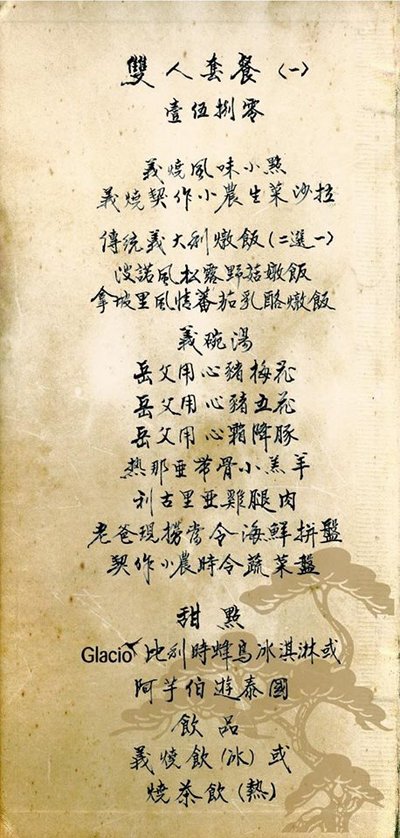 雙人套餐（一）
壹伍捌零
義燒風味小點
義燒契作小農生菜沙拉
傳統義大利燉飯(二選一)
波諾風松露野菇燉飯
拿坡里風情蕃茄乳酪燉飯
義碗湯
岳父用心豬梅花
岳父用心豬五花
岳父用心霜降豚
熱那亞帶骨小羔羊
利古里亞雞腿肉
老爸現撈當令海鮮拼盤
契作小農時令蔬菜盤
甜點
Glacio 比利時蜂鳥冰淇淋或
阿芋伯遊泰國
飲品
義燒飲(冰)或
燒茶飲(熱)